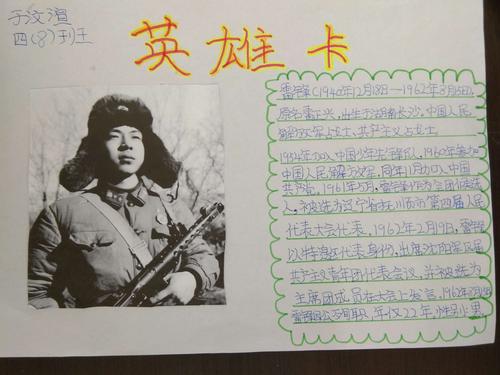 于汶渲
四(8)班
英雄卡
雷锋(1940年12月18日—1962年8月15日),
原名雷正兴,出生于湖南长沙,中国人民
解放军战士,共产主义战士。
1954年加入中国少年先锋队,1960年参加
中国人民解放军,同年11月加入中国
共产党。1961年5月,雷锋作为
人,被选为辽宁省抚顺市第四届人民
代表大会代表。1962年2月19日,雷锋
以特邀代表身份,出席沈阳军区
共产主义青年团代表会议,并被选为
主席团成员在大会上发言,1962年8月15日
雷锋因公殉职,年仅22年